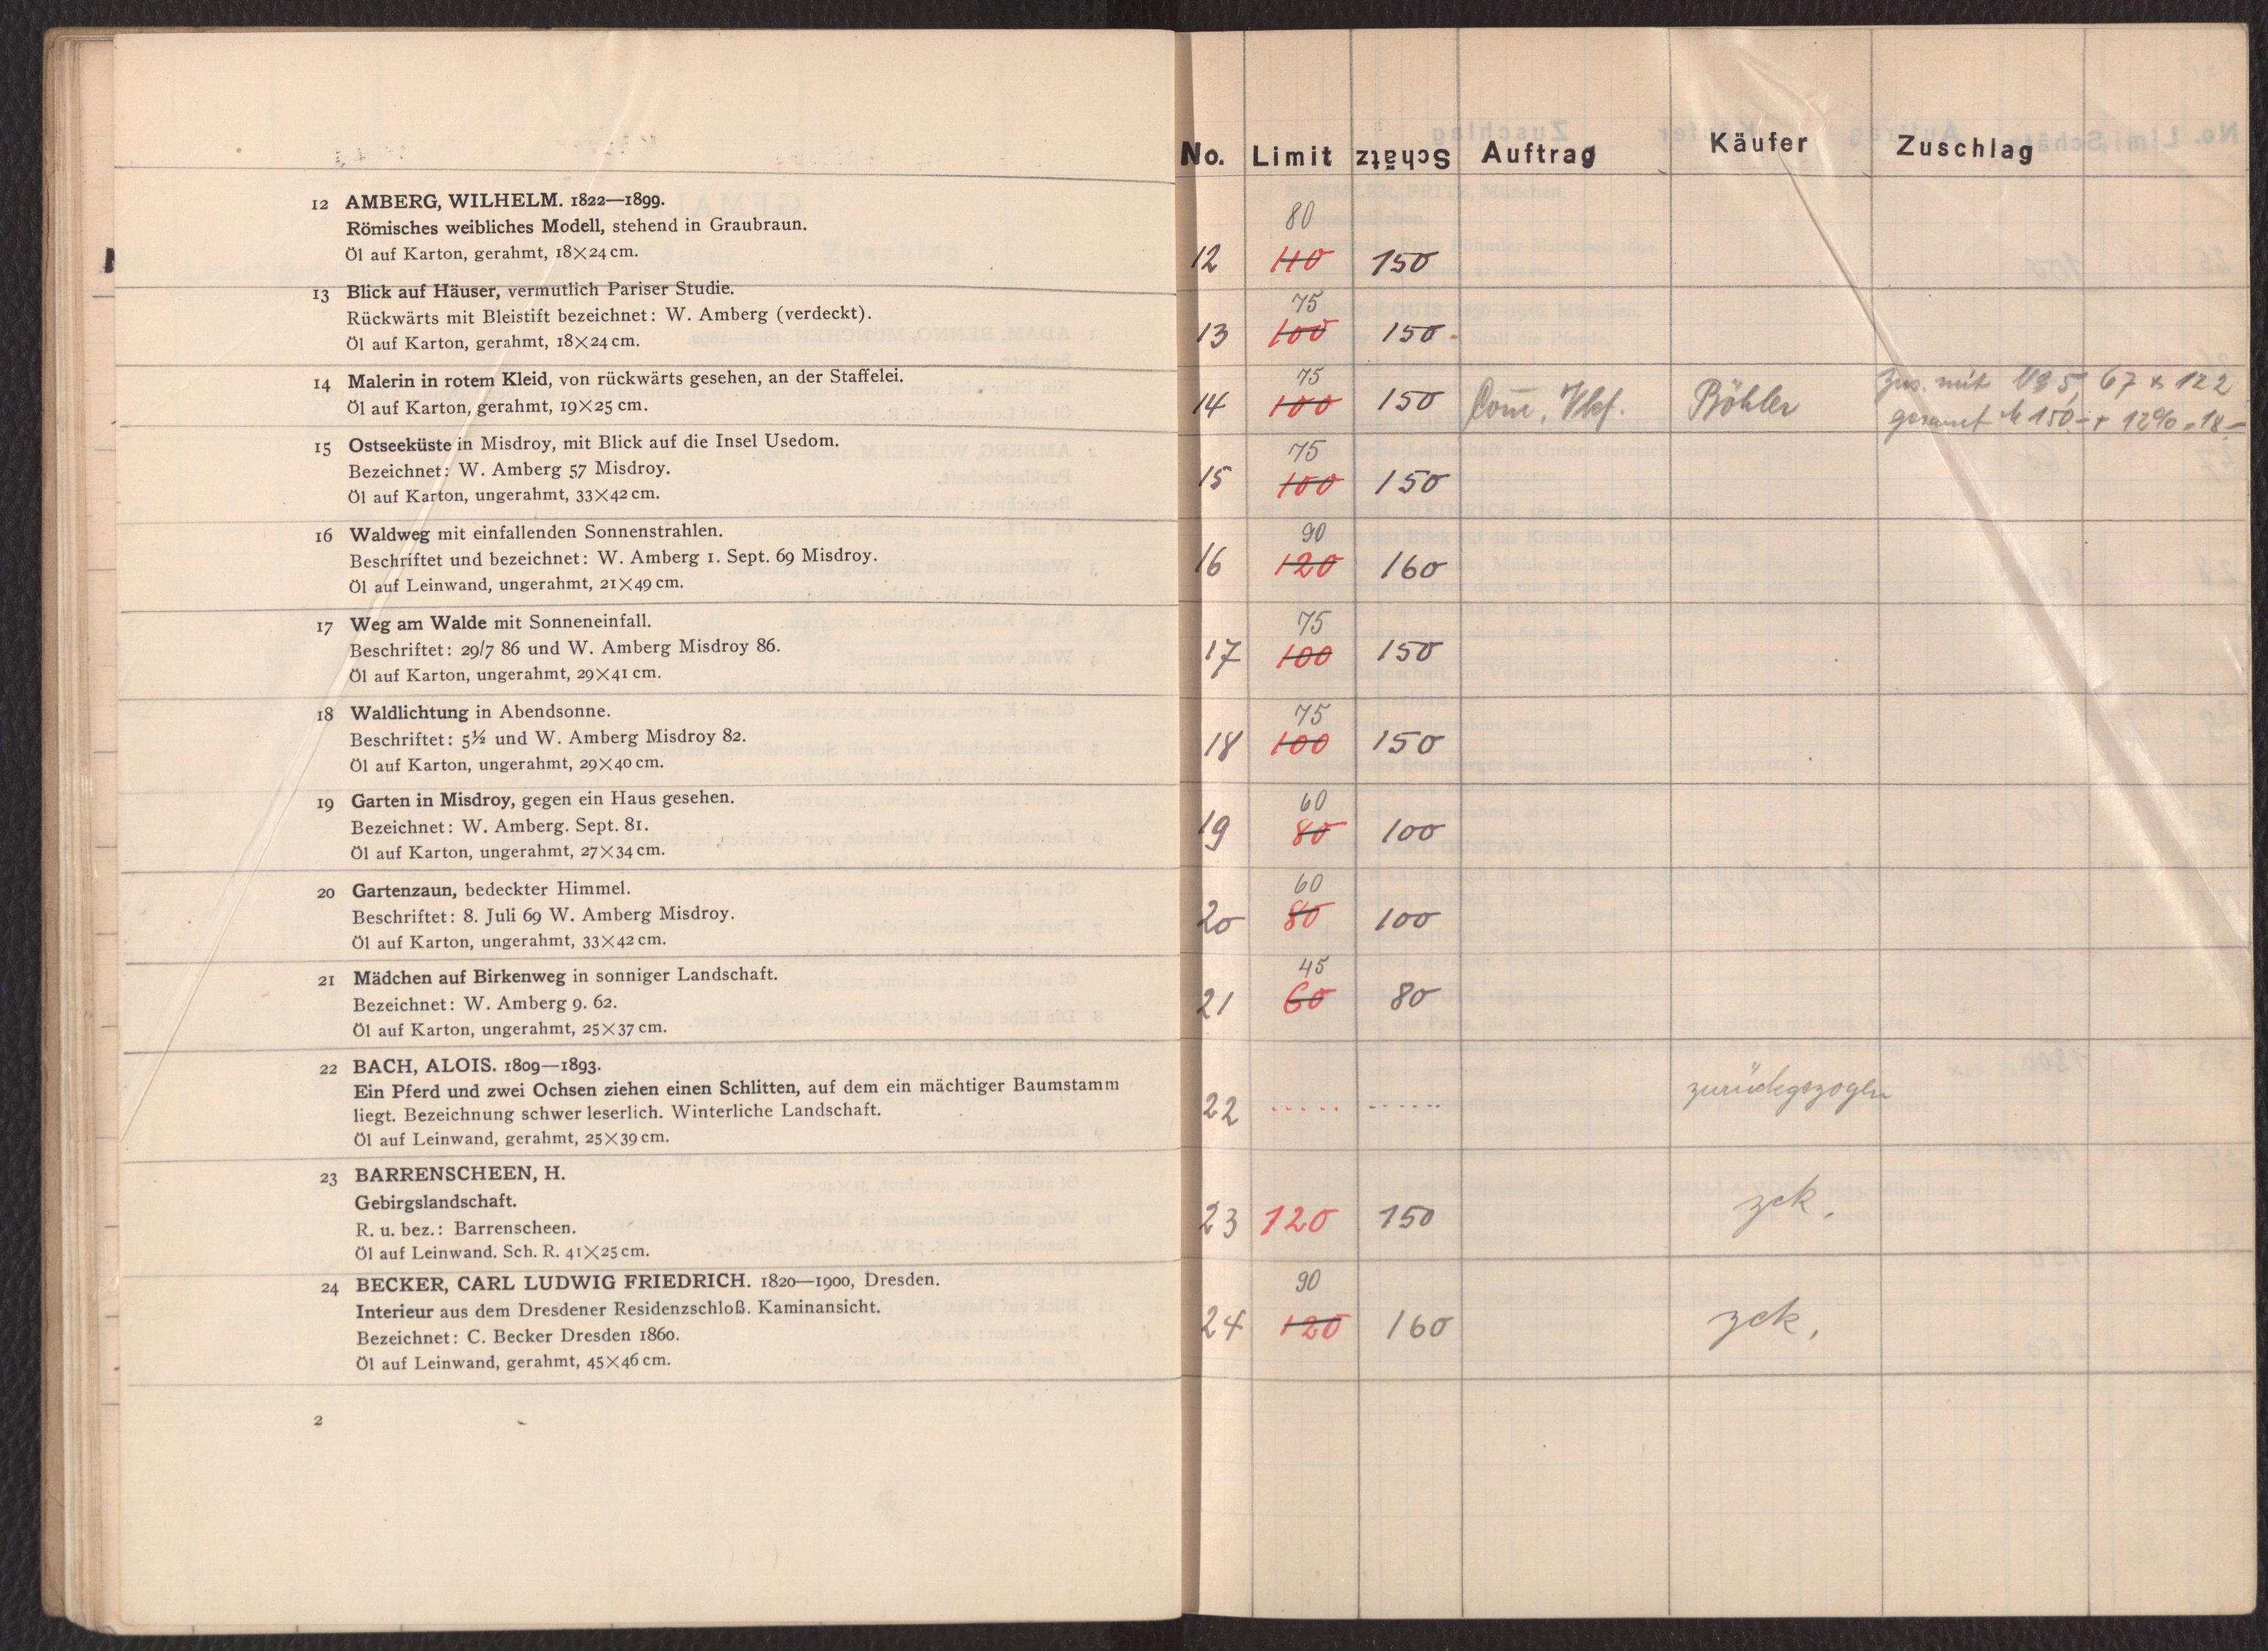 12 AMBERG, WILHELM. 1822—1899.
Römisches weibliches Modell, stehend in Graubraun.
Öl auf Karton, gerahmt, 18×24 cm.
13 Blick auf Häuser, vermutlich Pariser Studie.
Rückwärts mit Bleistift bezeichnet: W. Amberg (verdeckt).
Öl auf Karton, gerahmt, 18×24 cm.
14 Malerin in rotem Kleid, von rückwärts gesehen, an der Staffelei.
Öl auf Karton, gerahmt, 19×25 cm.
15 Ostseeküste in Misdroy, mit Blick auf die Insel Usedom.
Bezeichnet: W. Amberg 57 Misdroy.
Öl auf Karton, ungerahmt, 33×42 cm.
16 Waldweg mit einfallenden Sonnenstrahlen.
Beschriftet und bezeichnet: W. Amberg 1. Sept. 69 Misdroy.
Öl auf Leinwand, ungerahmt, 21×49 cm.
17 Weg am Walde mit Sonneneinfall.
Beschriftet: 29/7 86 und W. Amberg Misdroy 86.
Öl auf Karton, ungerahmt, 29×41 cm.
18 Waldlichtung in Abendsonne.
Beschriftet: 5½ und W. Amberg Misdroy 82.
Öl auf Karton, ungerahmt, 29×40 cm.
19 Garten in Misdroy, gegen ein Haus gesehen.
Bezeichnet: W. Amberg. Sept. 81.
Öl auf Karton, ungerahmt, 27×34 cm.
20 Gartenzaun, bedeckter Himmel.
Beschriftet: 8. Juli 69 W. Amberg Misdroy.
Öl auf Karton, ungerahmt, 33×42 cm.
21 Mädchen auf Birkenweg in sonniger Landschaft.
Bezeichnet: W. Amberg 9. 62.
Öl auf Karton, ungerahmt, 25×37 cm.
22 BACH, ALOIS. 1809—1893.
Ein Pferd und zwei Ochsen ziehen einen Schlitten, auf dem ein mächtiger Baumstamm
liegt. Bezeichnung schwer leserlich. Winterliche Landschaft.
Öl auf Leinwand, gerahmt, 25×39 cm.
23 BARRENSCHEEN, H.
Gebirgslandschaft.
R. u. bez.: Barrenscheen.
Öl auf Leinwand. Sch. R. 41×25 cm.
24 BECKER, CARL LUDWIG FRIEDRICH. 1820—1900, Dresden.
Interieur aus dem Dresdener Residenzschloß. Kaminansicht.
Bezeichnet: C. Becker Dresden 1860.
Öl auf Leinwand, gerahmt, 45×46 cm.
2
No. Limit Schätz Auftrag Käufer Zuschlag
80
12 110 150
75
13 100 150
75 zus. mit 67 122
14 100 150 Com. Vkf. Böhler gesamt 150.- + 12% 18.-
75
15 100 150
90
16 120 160
75
17 100 150
75
18 100 150
60
19 80 100
60
20 80 100
45
21 60 80
22 ..... ------ zurückgezogen
23 120 150 zck.
90
24 120 160 zck.